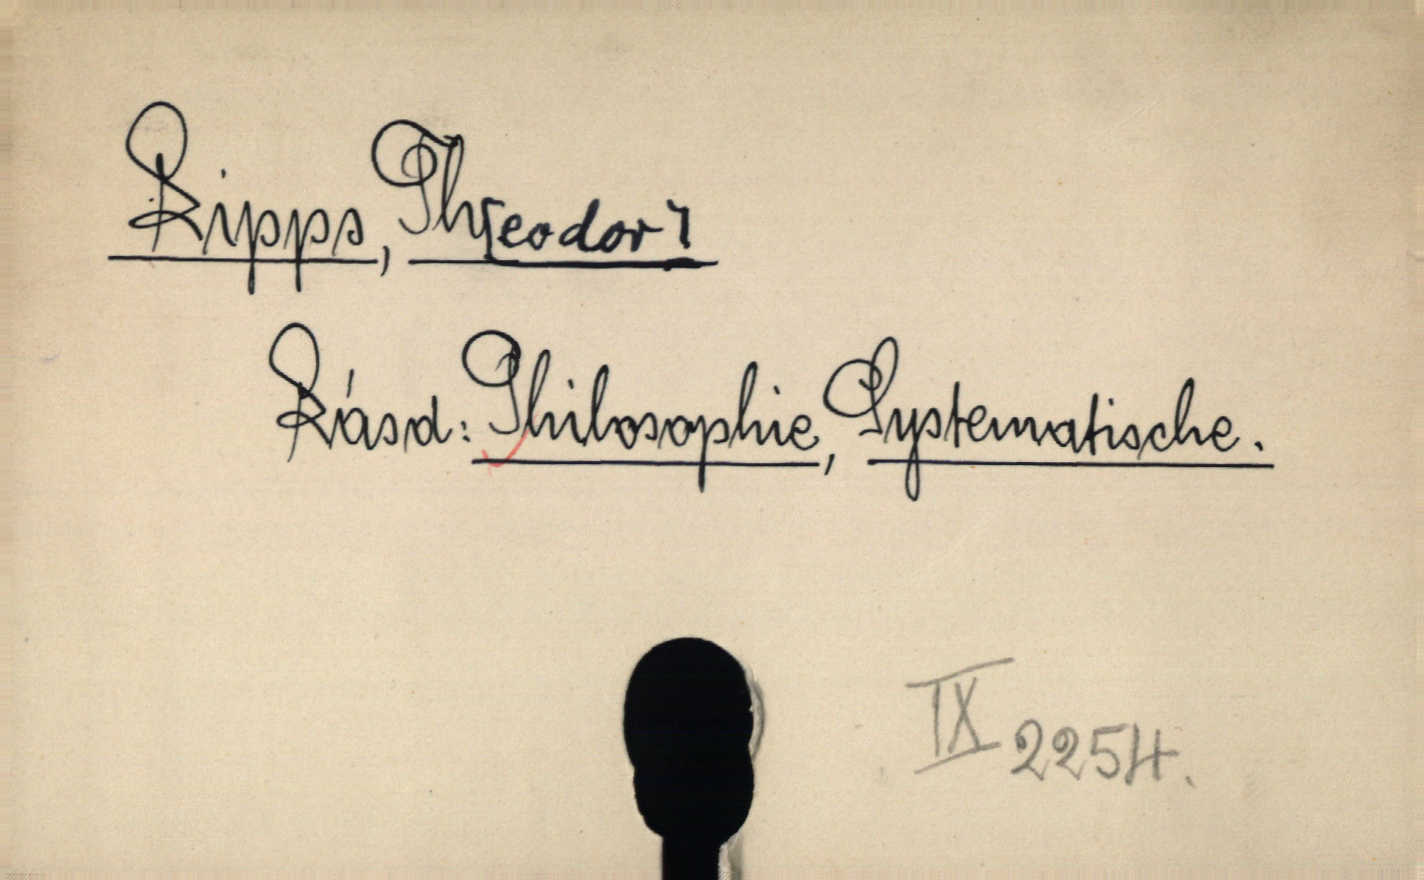 Lipps, Th[eodor]
Lásd: Philosophie, Systematische.
IX 2254.